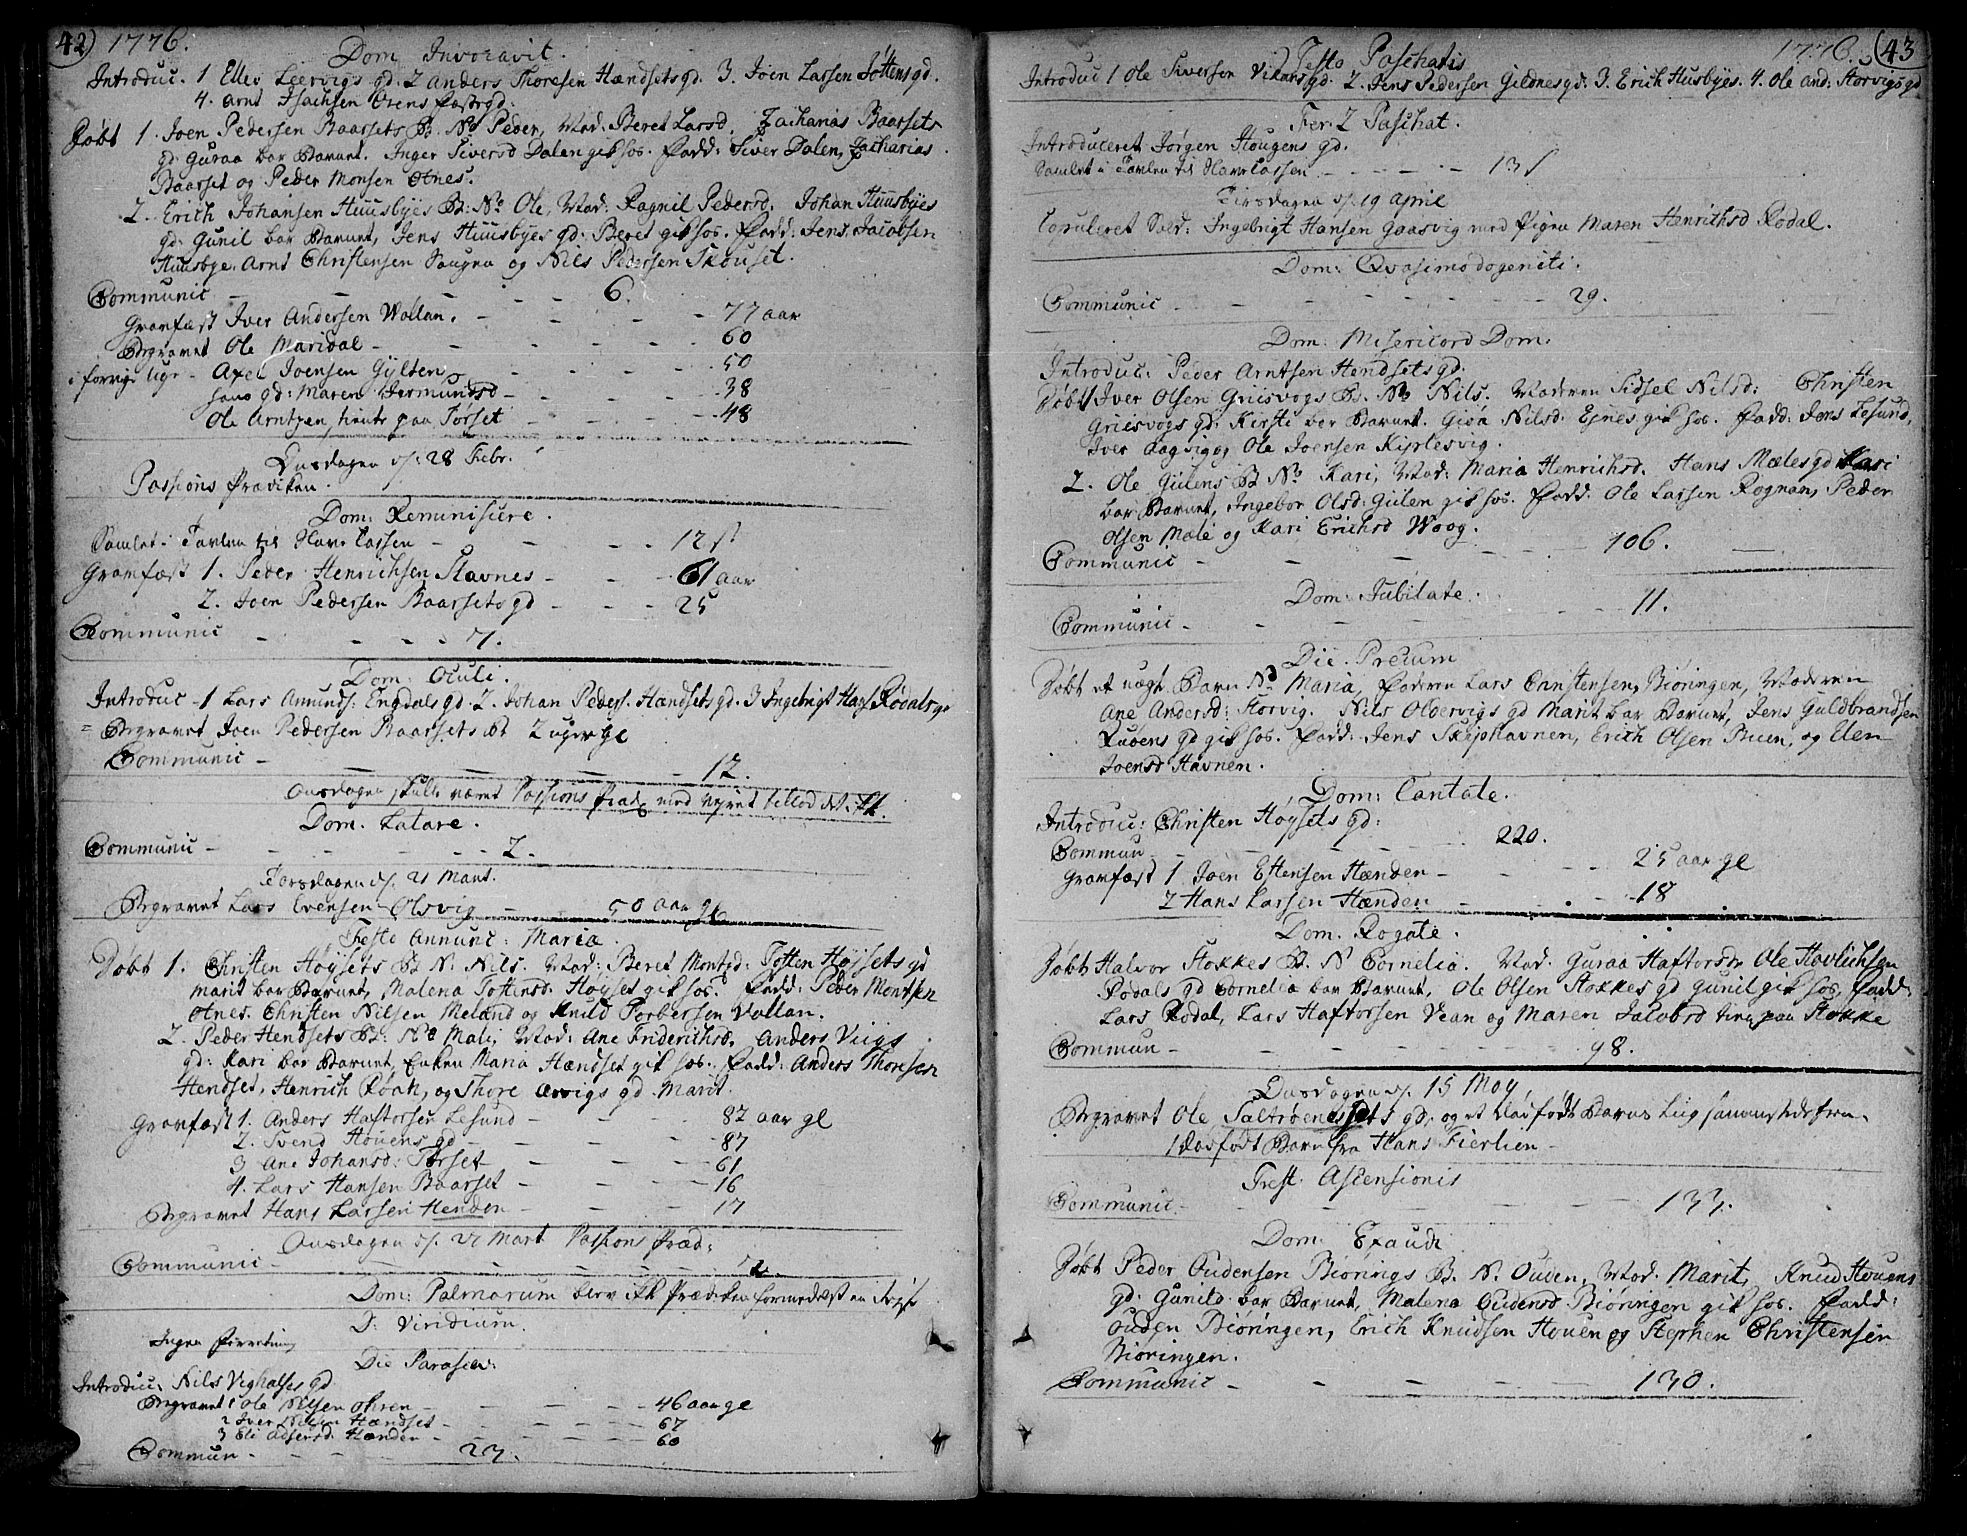 42) 1776.
Dom Invocavit.
Introduc. 1 Ellev Leervigs gd. 2 Anders Thoresen Hændsets gd. 3. Joen Larssen Tøttens gd.
4. Arnt Isachsen Ørens gd.
Døbt 1. Joen Pedersen Baarsets B. No Peder, Mod. Beret Larsd. Zacharias Baarsets
gd Guraa bar Barnet. Inger Siversd Dalen gik hos. Fadd: Siver Dalen, Zacharias
Baarset og Peder Monsen Otnes.
2. Erich Johansen Huusbyes B: No Ole, Mod: Ragnil Pedersd. Johan Huusbyes
gd. Gunil bar Barnet, Jens Huusbyes gd: Beret gik hos. Fadd: Jens Jacobsen
Huusbye. Arnt Christensen Saugen og Nils Pedersen Skouset.
Communic - - - - 6.
Gravfæst Iver Andersen Wollan. - - - 77 aar
Begravet Ole Maridal - - - 60
i forrige Uge - Axel Joensen Gylten - - - 50
hans gd: Maren Jermundsd - - - 38
Ole Arntzen, tiente paa Torset - - - 48
Onsdagen d. 28 Febr.
Passions Prædiken.
Dom: Reminiscere.
Samlet i Tavlen til Have Cassen - - - 12 s
Gravfæst 1. Peder Henrichsen Stavnes - - - 61 aar
2. Joen Pedersen Baarsets gd - - - 25
Communic - - - 7.
Dom: Oculi.
Introduc - 1 Lars Amunds: Engdals gd. 2. Johan Peders. Hændsets gd. 3 Ingebrigt Hans Rødals gd
Begravet Joen Pedersen Baarsets B 2 uger gl
Communic - - - - 12.
Onsdagen skulle været Passions Præd. med
Dom. Lætare.
Communic - - - - 2.
Torsdagen d. 21 Mart.
Begravet Lars Evensen Olsvig - - 50 aar gl
Festo Annunc: Mariæ.
Døbt 1. Christen Høysets B N. Nils. Mod: Beret Montsd: Totten Høysets gd
Marit bar Barnet, Malena Tottensd. Høyset gik hos. Fadd: Peder Montsen
Otnes. Christen Nilsen Meland og Knud Torbersen Vollan.
2. Peder Hendsets B: No Mali, Mod: Ane Friderichsd. Anders Viigs
gd: Kari bar Barnet, Enken Maria Hændset gik hos. Fadd: Anders Thoresen
Hendset, Henrich Roak, og Thore Arvigs gd Marit.
Gravfæst 1. Anders Haftorsen Lesund - - - 82 aar gl
2. Svend Houens gd - - - 87
3 Ane Johansd: Torset - - - 61
4. Lars Hansen Baarset - - - 16
Begravet Hans Larsen Henden - - - 17
Onsdagen d. 27 Mart Passions Præd:
Communic - - - - 72.
Dom: Palmarum blev ikke Prædiken formedelst en
D: Viridium.
Ingen Forretning
Die Parascev:
Introduc: Nils Vighalses gd
Begravet 1 Ole Nilsen Ohren - - - 46 aar gl
2 Iver Nilsen Hændset - - - 67
3 Eli Adsersd. Hænden - - - 60
Commun - - - 23.
1776. (43
Festo Paschatis
Introduc 1 Ole Siversen Vikans gd. 2. Jens Pedersen Gildnes gd. 3. Erich Husbyes. 4. Ole And: Storvigs gd
Fer. 2 Paschat.
Introduceret Jørgen Hougens gd.
Samlet i Tavlen til Have Cassen - - - - 13 s
Fredagen d. 19 April
Copuleret Sold: Ingebrigt Hansen Gaasvig med Pigen Maren Henrichsd Rodal.
Dom: Qvasimodogeniti.
Communic - - - - 29.
Dom: Misericord Dom.
Introduc: Peder Arntsen Hendsets gd.
Døbt 1 Iver Olsen Griisvogs B. No Nils. Moderen Sidsel Nilsd: Christen
Griisvogs gd: Kirsti bar Barnet. Giøa Nilsd: Ejnes gik hos. Fadd: Jens Lesund,
Iver Aagvig og Ole Joensen Kjørlesvig.
2. Ole Gulens B No Kari, Mod: Maria Henrichsd. Hans Mæles gd Kari
bar Barnet, Ingebor Olsd: Gulen gik hos. Fadd: Ole Larsen Rognan, Peder
Olsen Mæle og Kari Erichsd Woog.
Communic - - - - 106.
Dom: Jubilate.
Communic - - - - 11.
Die Precum
Døbt et uægt Barn No Maria, Faderen Lars Christensen, Biøringen, Moderen
Ane Andersd: Storvig. Nils Olbervigs gd Marit bar Barnet, Jens Guldbrandsen
Rudens gd gik hos. Fadd: Jens Skejshavnen, Erich Olsen Buen, og Elen
Joensd Havnen.
Dom: Cantate.
Introduc: Christen Høysets gd:
Commun - - - - 220.
Gravfæst 1 Joen Ellensen Hænden - - - 25 aar gl
2 Hans Larsen Hænden - - - 18
Dom. Rogate.
Døbt Halvor Stokkes B. N Cornelia. Mod. Guraa Haftorsd. Ole Havlichsen
Rodals gd Cornelia bar Barnet, Ole Olsen Stokkes gd Gunil gik hos, Fadd:
Lars Rodal, Lars Haftorsen Vean og Maren Jacobsd tien. paa Stokke
Commun - - - - 98.
Onsdagen d. 15 May
Begravet Ole Saltrøens gd, og et dødfødt Barns Liig sammestedsfra.
1 Dødfødt Barn fra Hans Fierlien -
Fest. Ascensionis
Communic - - - - 133.
Dom. Exaudi
Døbt Peder Oudensen Biørings B. N. Ouden, Mod. Marit, Knud Houens
gd. Gunild bar Barnet, Malena Oudensd Biøringen gik hos. Fadd:
Ouden Biøringen, Erich Knudsen Houen og Stephen Christensen
Biøringen.
Communic - - - - 130.